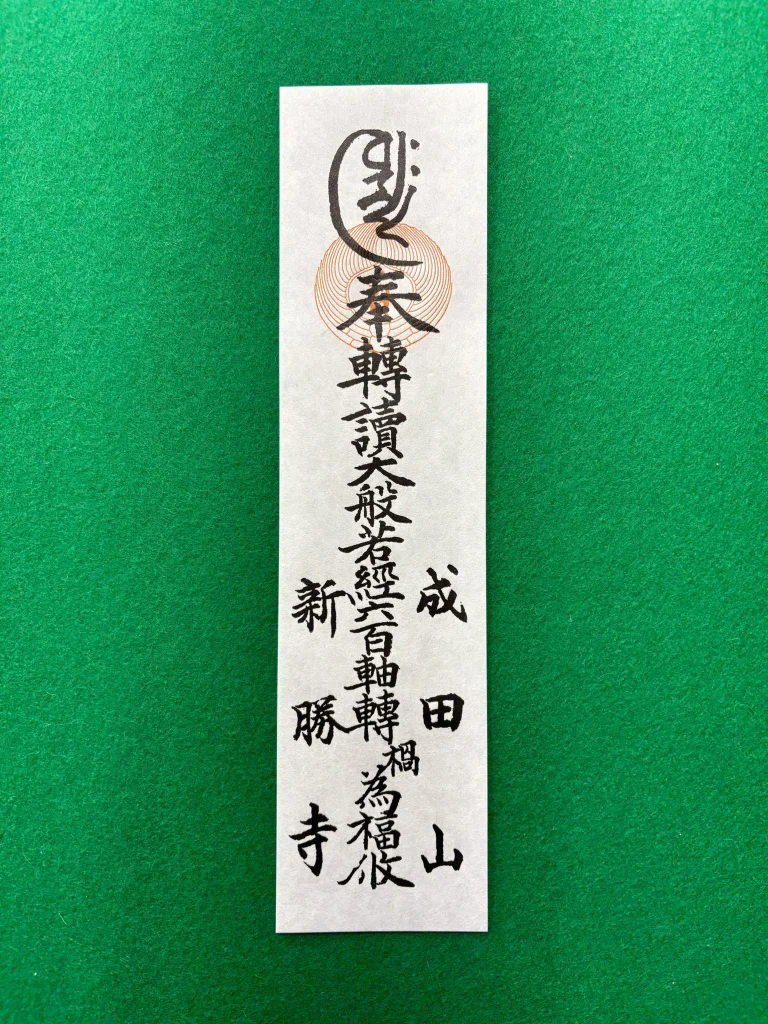 成田山
奉轉讀大般若經六百軸轉禍為福攸
新勝寺